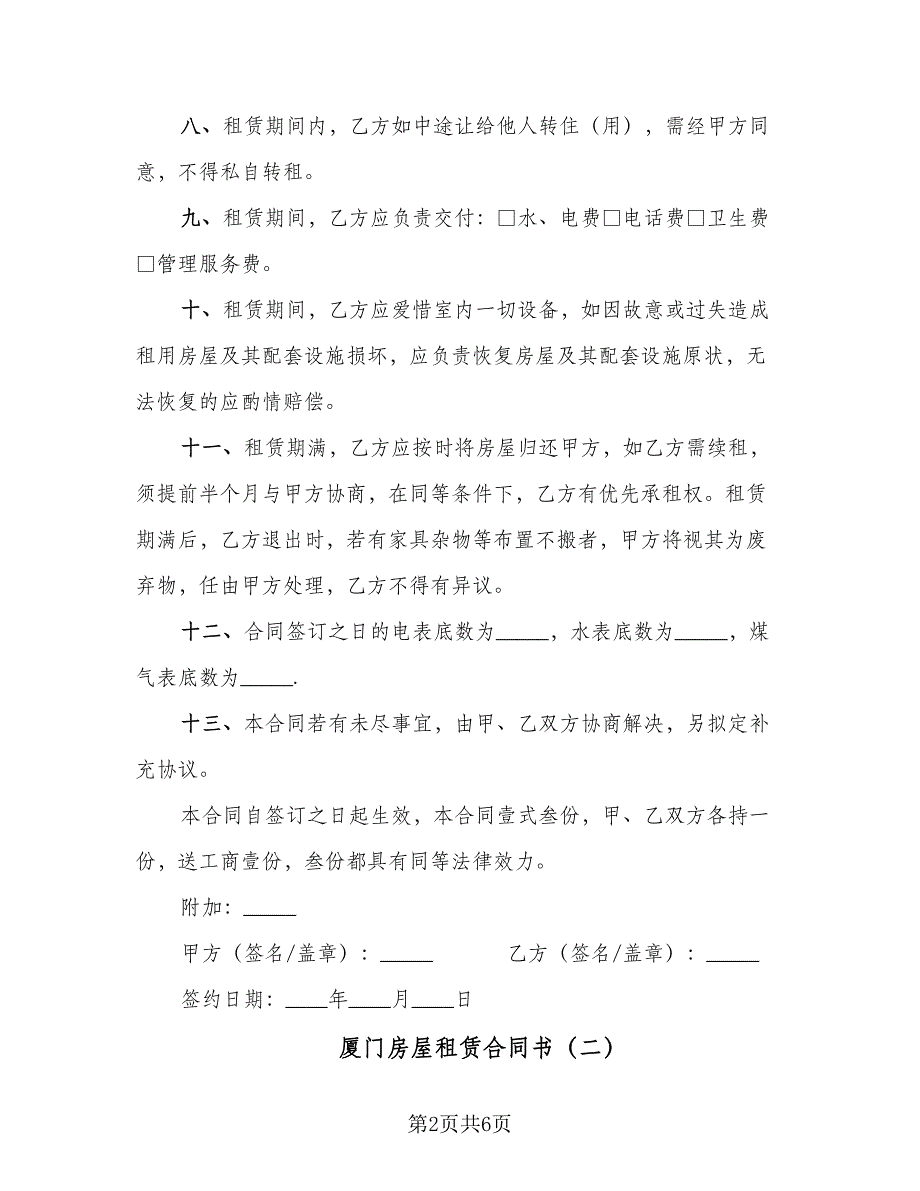 八、租赁期间内，乙方如中途让给他人转住（用），需经甲方同
意，不得私自转租。
九、租赁期间，乙方应负责交付：□水、电费□电话费□卫生费
□管理服务费。
十、租赁期间，乙方应爱惜室内一切设备，如因故意或过失造成
租用房屋及其配套设施损坏，应负责恢复房屋及其配套设施原状，无
法恢复的应酌情赔偿。
十一、租赁期满，乙方应按时将房屋归还甲方，如乙方需续租，
须提前半个月与甲方协商，在同等条件下，乙方有优先承租权。租赁
期满后，乙方退出时，若有家具杂物等布置不搬者，甲方将视其为废
弃物，任由甲方处理，乙方不得有异议。
十二、合同签订之日的电表底数为_____，水表底数为_____，煤
气表底数为_____.
十三、本合同若有未尽事宜，由甲、乙双方协商解决，另拟定补
充协议。
本合同自签订之日起生效，本合同壹式叁份，甲、乙双方各持一
份，送工商壹份，叁份都具有同等法律效力。
附加：_____
甲方（签名/盖章）：_____ 乙方（签名/盖章）：_____
签约日期：____年____月____日
厦门房屋租赁合同书（二）
第2页共6页